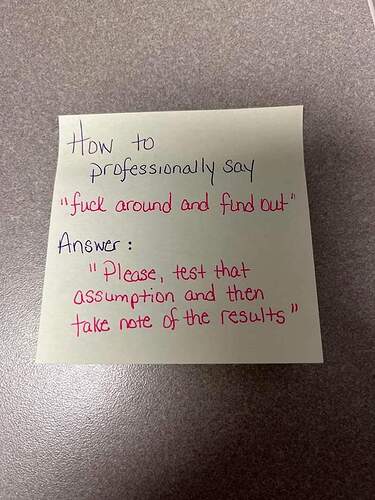 How to
professionally say
"fuck around and find out"
Answer:
"Please, test that
assumption and then
take note of the results"